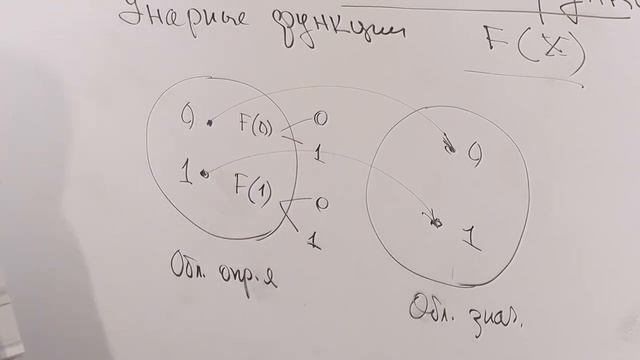 Унарные функции F(X)
0 F(0) 0
1
0
1 F(1) 0
1
1
Обл. опр.я
Обл. знач.